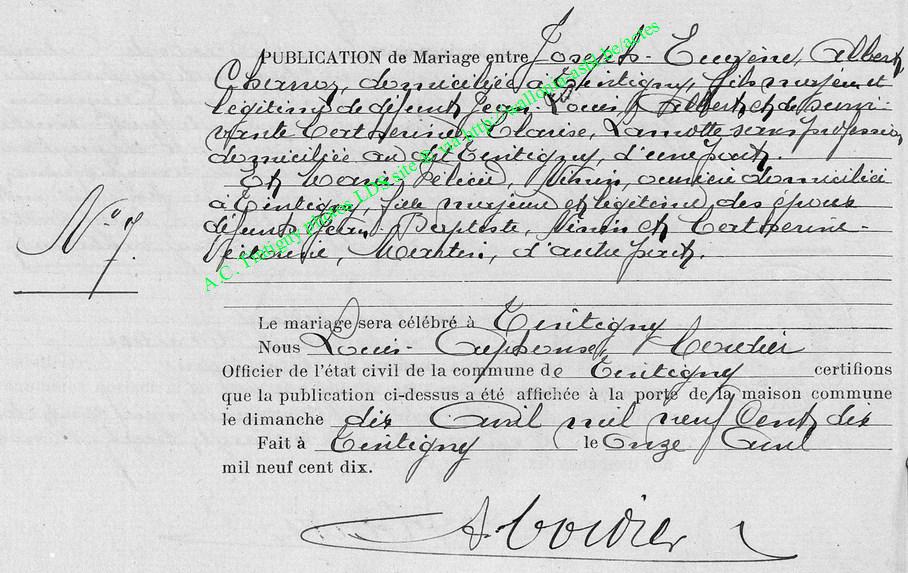 PUBLICATION de Mariage entre Joseph-Eugène, Albert
domiciliée à Tintigny, fils majeur et
légitime de défunt Jean Louis, Albert et de survi-
vante Catherine, Clarise, Lamotte sans profession
domiciliée au dit Tintigny, d'une part.
Et Marie, Félicie, ouvrière domiciliée
à Tintigny, fille majeure et légitime, des époux
défunts Jean-Baptiste, et Catherine-
Martin, d'autre part.
N° 7.
Le mariage sera célébré à Tintigny
Nous Louis-Alphonse, Cordier
Officier de l'état civil de la commune de Tintigny certifions
que la publication ci-dessus a été affichée à la porte de la maison commune
le dimanche dix Avril mil neuf Cent dix
Fait à Tintigny le Onze Avril
mil neuf cent dix.
A. Cordier
A.C. Tintigny photos LDS site via http://